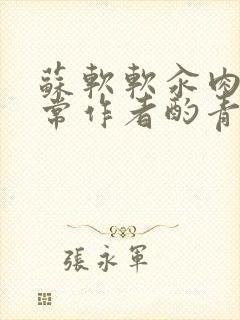 蘇軟軟汆肉
常作者酌青
張永軍